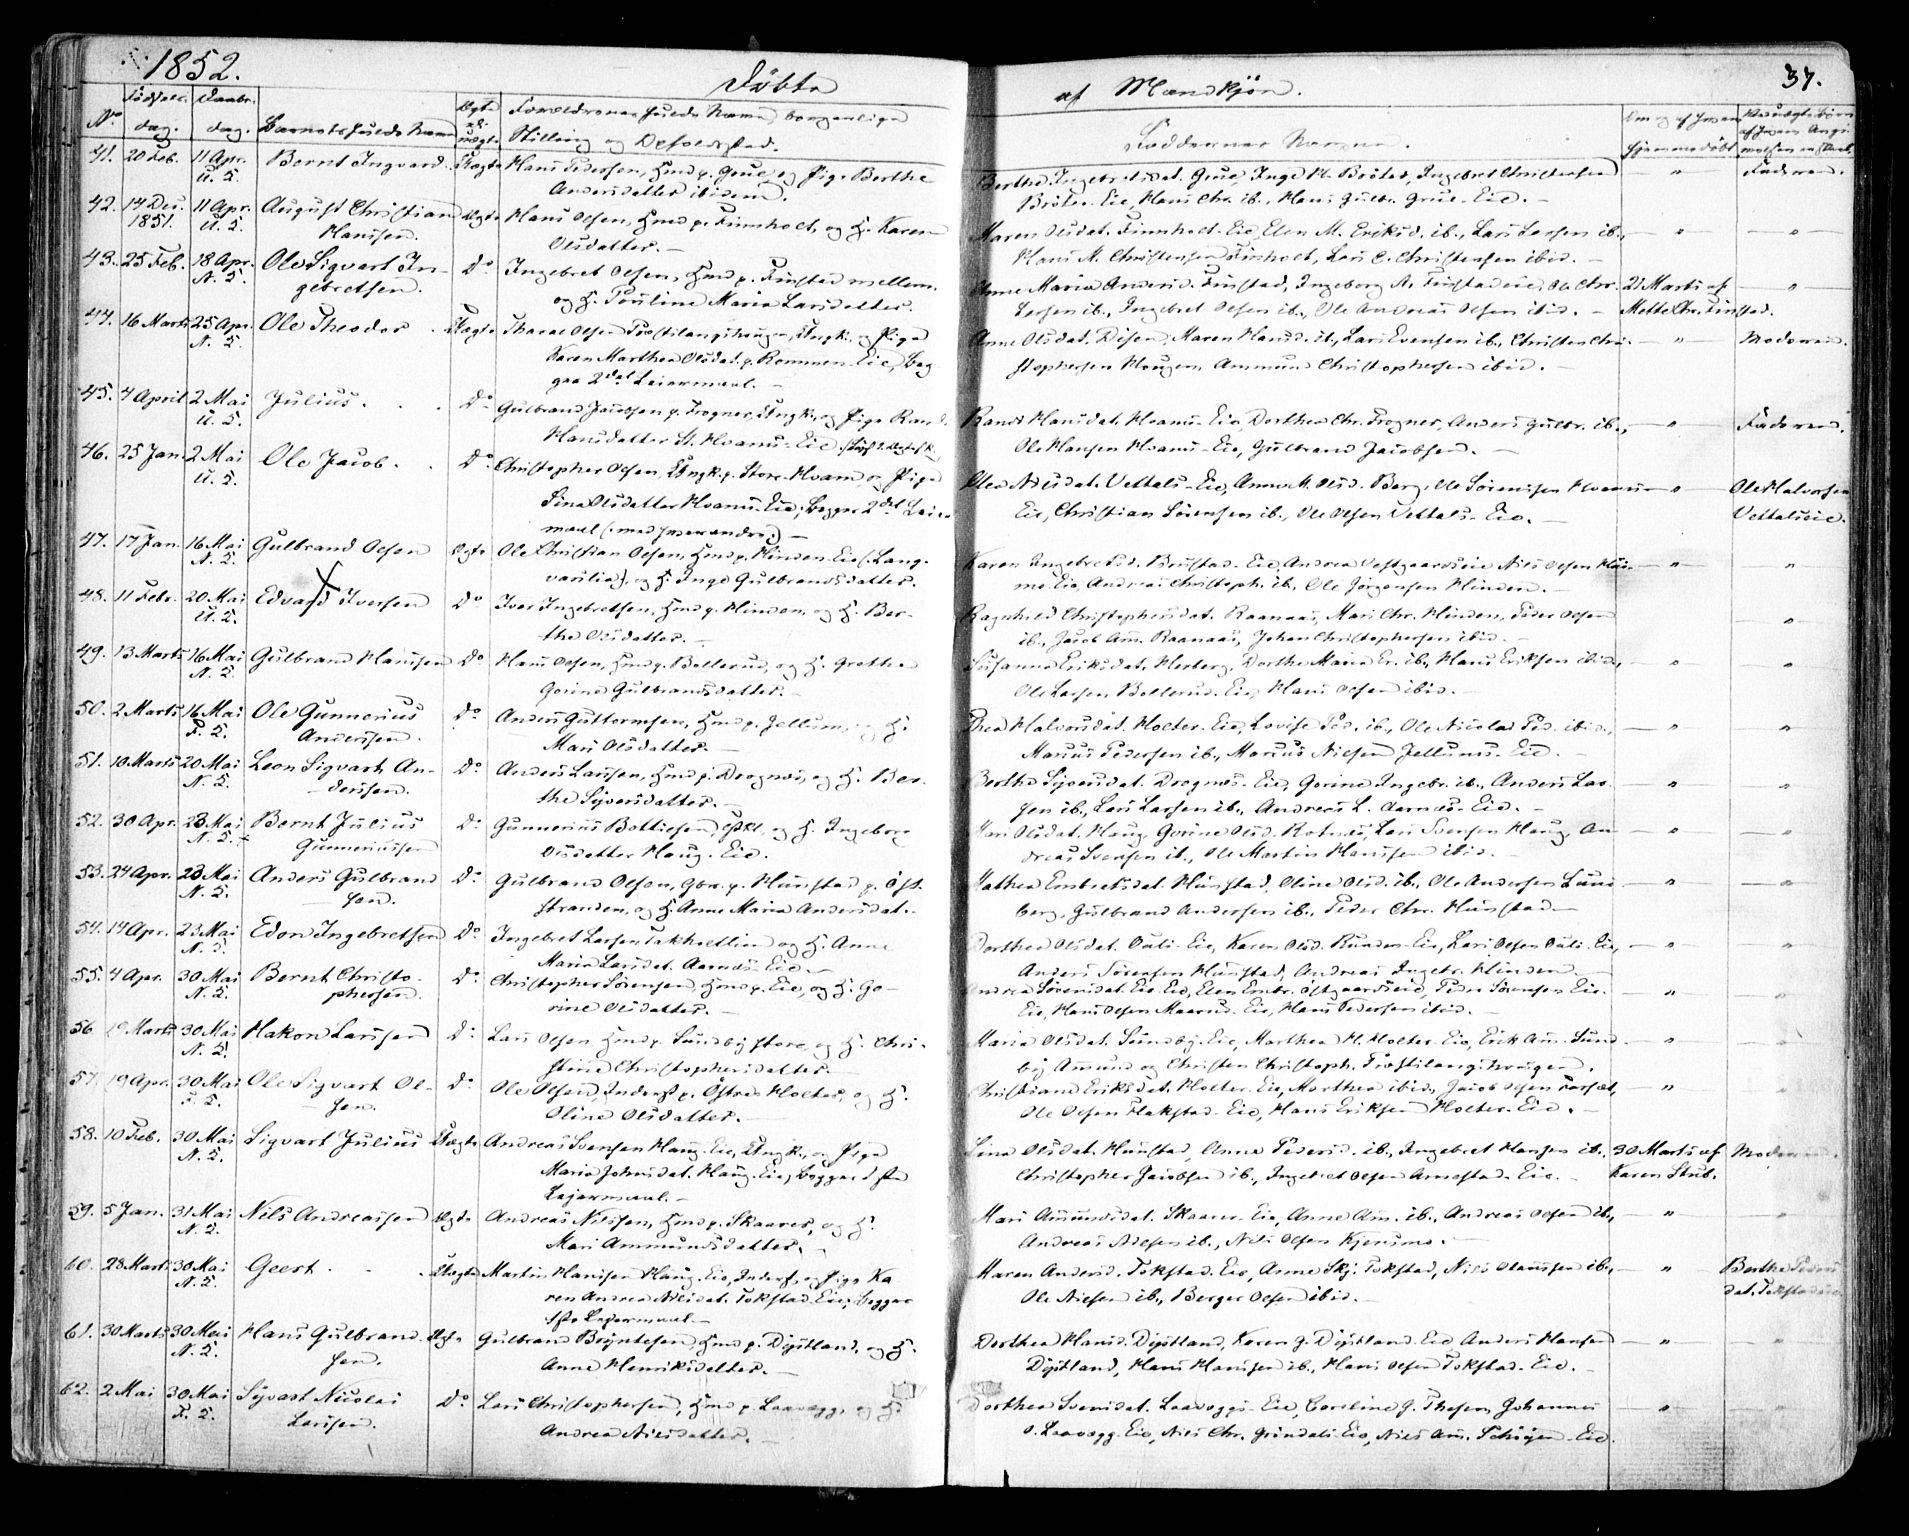 1852.
Døbte
af Mandkjøn.
37.
No
Fødsels-
dag.
Daabs-
dag.
Barnets fulde Navn
Ægte
el.
uægte
Forældrenes fulde Navne, borgerlige
Stilling og Opholdssted.
Faddernes Navne.
41. 20 Feb. 11 Apr. Bernt Ingvard. Uægte Hans Pedersen, Gmd p. Grue, og Pige Berthe
Andersdatter ibidem.
Berthe Ingebretsdat. Grue, Inge M. Bröter, Ingebret Christensen
Bröter-Eie, Hans Chr. ib., Hans Gulbr. Grue-Eie.
Faderen.
42. 14 Dec. 11 Apr. August Christian Ægte Hans Olsen, Gmd p. Finnholt, og H. Karen
1851. Hansen. Olsdatter.
Maren Olsdat. Finnholt-Eie, Elen M. Eriksd. ib., Lars Larsen ib.,
Hans M. Christensen Finholt, Lars C. Christensen ibid.
43. 25 Feb. 18 Apr. Ole Sigvart In- Do Ingebret Olsen, Gmd p. Finstad mellem,
gebretsen. og H. Pouline Maria Larsdatter.
Anne Maria Andersd. Finstad, Ingeborg A. Finstadeie, Ole Chr. 21 Marts af
Larsen ib., Ingebret Olsen ib., Ole Andreas Olsen ibid. Mette Chr. Finstad.
44. 16 Marts 25 Apr. Ole Theodor Uægte Olsen Trøstilangshaugen, Ungk., og Pige
Karen Marthea Olsdat. p. Rommen-Eie, beg-
ges 2det Leiermaal.
Anne Olsdat. Disen, Maren Hansd. ib., Lars Evensen ib., Christen Chri-
stophersen Hougen, Ammund Christophersen ibid.
Moderen.
45. 4 April 2 Mai Julius. Do Gulbrand Jacobsen p. Frogner, Ungk., og Pige Randi
Hansdatter St. Hvams-Eie
Randi Hansdat. Hvams-Eie, Dorthea Chr. Frogner, Anders Gulbr. ib.,
Ole Hansen Hvams-Eie, Gulbrand Jacobsen.
Faderen.
46. 25 Jan. 2 Mai Ole Jacob. Do Christopher Olsen, Ungk. p. Store-Hvam, og Pige
Sina Olsdatter Hvams-Eie; begges 2det Leier-
maal (med hverandre)
Olea Nilsdat. Vettals-Eie, Anne M. Olsd. Berg, Ole Sörensen Hvams-
Eie, Christian Sörensen ib., Ole Olsen Vettals-Eie.
Ole Halvorsen
Vettalseie.
47. 17 Jan. 16 Mai Gulbrand Olsen Ægte Ole Christian Olsen, Gmd p. Hinden-Eie (Lang-
og H. Inge Gulbrandsdatter.
Karen Ingebretsd. Brustad-Eie, Andrea Vestgaardseie, Nils Olsen
Eie, Andreas Christoph. ib., Ole Jörgensen Hinden.
48. 11 Febr. 20 Mai Edvard Iversen Do Iver Ingebretsen, Gmd p. Hinden, og H. Ber-
the Olsdatter.
Ragnhild Christophersdat. Raanaas, Mari Chr. Hinden, Peder Olsen
ib., Jacob Am. Raanaas, Johan Christophersen ibid.
49. 13 Marts 16 Mai Gulbrand Hansen Do Hans Olsen, Gmd p. Bollerud, og H. Grethea
Gorine Gulbrandsdatter.
Susanne Eriksdat. Herberg, Dorthe Maria Er. ib., Hans Eriksen ibid.,
Ole Larsen Bollerud-Eie, Hans Olsen ibid.
50. 2 Marts 16 Mai Ole Gunnerius Do Anders Guttormsen, Gmd p. Jellum, og H.
Anderssen. Mari Olsdatter.
Thea Halvorsdat. Holter-Eie, Lovise Ped. ib., Ole Nicolai Ped. ibid.,
Marius Pedersen ib., Marius Nielsen Jellums-Eie.
51. 10 Marts 20 Mai Leon Sigvart An- Do Anders Larsen, Gmd p. Dragnes, og H. Ber-
dersen. the Syversdatter.
Berthe Syversdat. Dragnes-Eie, Gorine Ingebr. ib., Anders Lar-
sen ib., Lars Larsen ib., Andreas L. Aarnes-Eie.
52. 30 Apr. 23 Mai Bernt Julius Do Gunnerius Bottilsen, og H. Ingeborg
Gunneriussen Olsdatter Haug-Eie.
Mari Olsdat. Haug, Gorine Olsd. Rotnes, Lars Svensen Haug, An-
dreas Svensen ib., Ole Martin Hanssen ibid.
53. 24 Apr. 23 Mai Anders Gulbrand- Do Gulbrand Olsen, Gbr. p. Hunstad p. Öst-
sen. stranden, og H. Anne Maria Andersdat.
Mathea Embretsdat. Hunstad, Oline Olsd. ib., Ole Andersen Lun-
berg, Gulbrand Andersen ib., Peder Chr. Hunstad
54. 14 Apr. 23 Mai Edon Ingebretsen Do Ingebret Larsen og H. Anne
Maria Larsdat. Aarnes-Eie.
Dorthea Olsdat. Ouli-Eie, Karen Olsd. Runden-Eie, Lars Olsen Ouli-Eie,
Anders Sörensen Hunstad, Andreas Ingebr. Hinden
55. 4 Apr. 30 Mai Bernt Christo- Do Christopher Sörensen, Gmd p. Eie, og H. Go-
phersen. rine Olsdatter.
Andrea Sörensdat. Eie-Eie, Elen Embr. Östgaardseie, Peder Sörensen Eie-
Eie, Hans Olsen Maarud-Eie, Hans Pedersen ibid.
56 19 Marts 30 Mai Hakon Larssen Do Lars Olsen Gmd p. Sundby store, og H. Chri-
stine Christophersdatter.
Maria Olsdat. Sundby-Eie, Marthea H. Holter-Eie, Erik Am. Sund-
by, Amund og Christen Christoph. Trøstilangshougen.
57. 19 Apr. 30 Mai Ole Sigvart Ol- Do Ole Olsen, Inderst p. Östre Holter, og H.
sen. Oline Olsdatter.
Christiane Eriksdat. Holter-Eie, Marthea ibid., Jacob Olsen
Ole Olsen Hakstad-Eie, Hans Eriksen Holter-Eie.
58. 10 Feb. 30 Mai Sigvart Julius Uægte Andreas Svensen Haug-Eie, Ungk., og Pige
Maria Johnsdat. Haug-Eie, begges 1ste
Lejermaal.
Lina Olsdat. Hunstad, Anne Pedersd. ib., Ingebret Hansen ib., 30 Marts af Moderen.
Christopher Jacobsen ib., Ingebret Olsen Arnestad-Eie. Karen Stub.
59. 5 Jan. 31 Mai Nils Andreassen Ægte Andreas Nilssen, Gmd p. Skaarer, og H.
Mari Ammundsdatter.
Mari Amundsdat. Skaarer-Eie, Anne Am. ib., Andreas Olsen ib.,
Andreas Nilsen ib., Nils Olsen Kjensmo.
60. 28 Marts 30 Mai Geert. Uægte Martin Hanssen Haug-Eie, Inderst, og Pige Ka-
ren Andrea Nilsdat. Tokstad-Eie; begges
1ste Lejermaal.
Maren Andersd. Tokstad-Eie, Anne Skj. Tokstad, Nils Olaussen ib., Berthe Peders-
Ole Nielsen ib., Berger Olsen ibid. dat. Tokstadeie
61. 30 Marts 30 Mai Hans Gulbrand- Ægte Gulbrand Bryntesen, Gmd p. Dystland, og H.
sen. Anne Henriksdatter.
Dorthea Hansd. Dystland, Karen G. Dystland-Eie, Anders Hansen
Dystland, Hans Hanssen ib., Hans Olsen Tokstad-Eie.
62. 2 Mai 30 Mai Syvert Nicolai Do Lars Christophersen, Gmd p. Laavegg, og H.
Larssen. Andrea Nilsdatter.
Dorthea Svensdat. Laaveggs-Eie, Caroline G. Thesen, Johannes
O. Laavegg-Eie, Nils Chr. Grindals-Eie, Nils Am. -Eie.